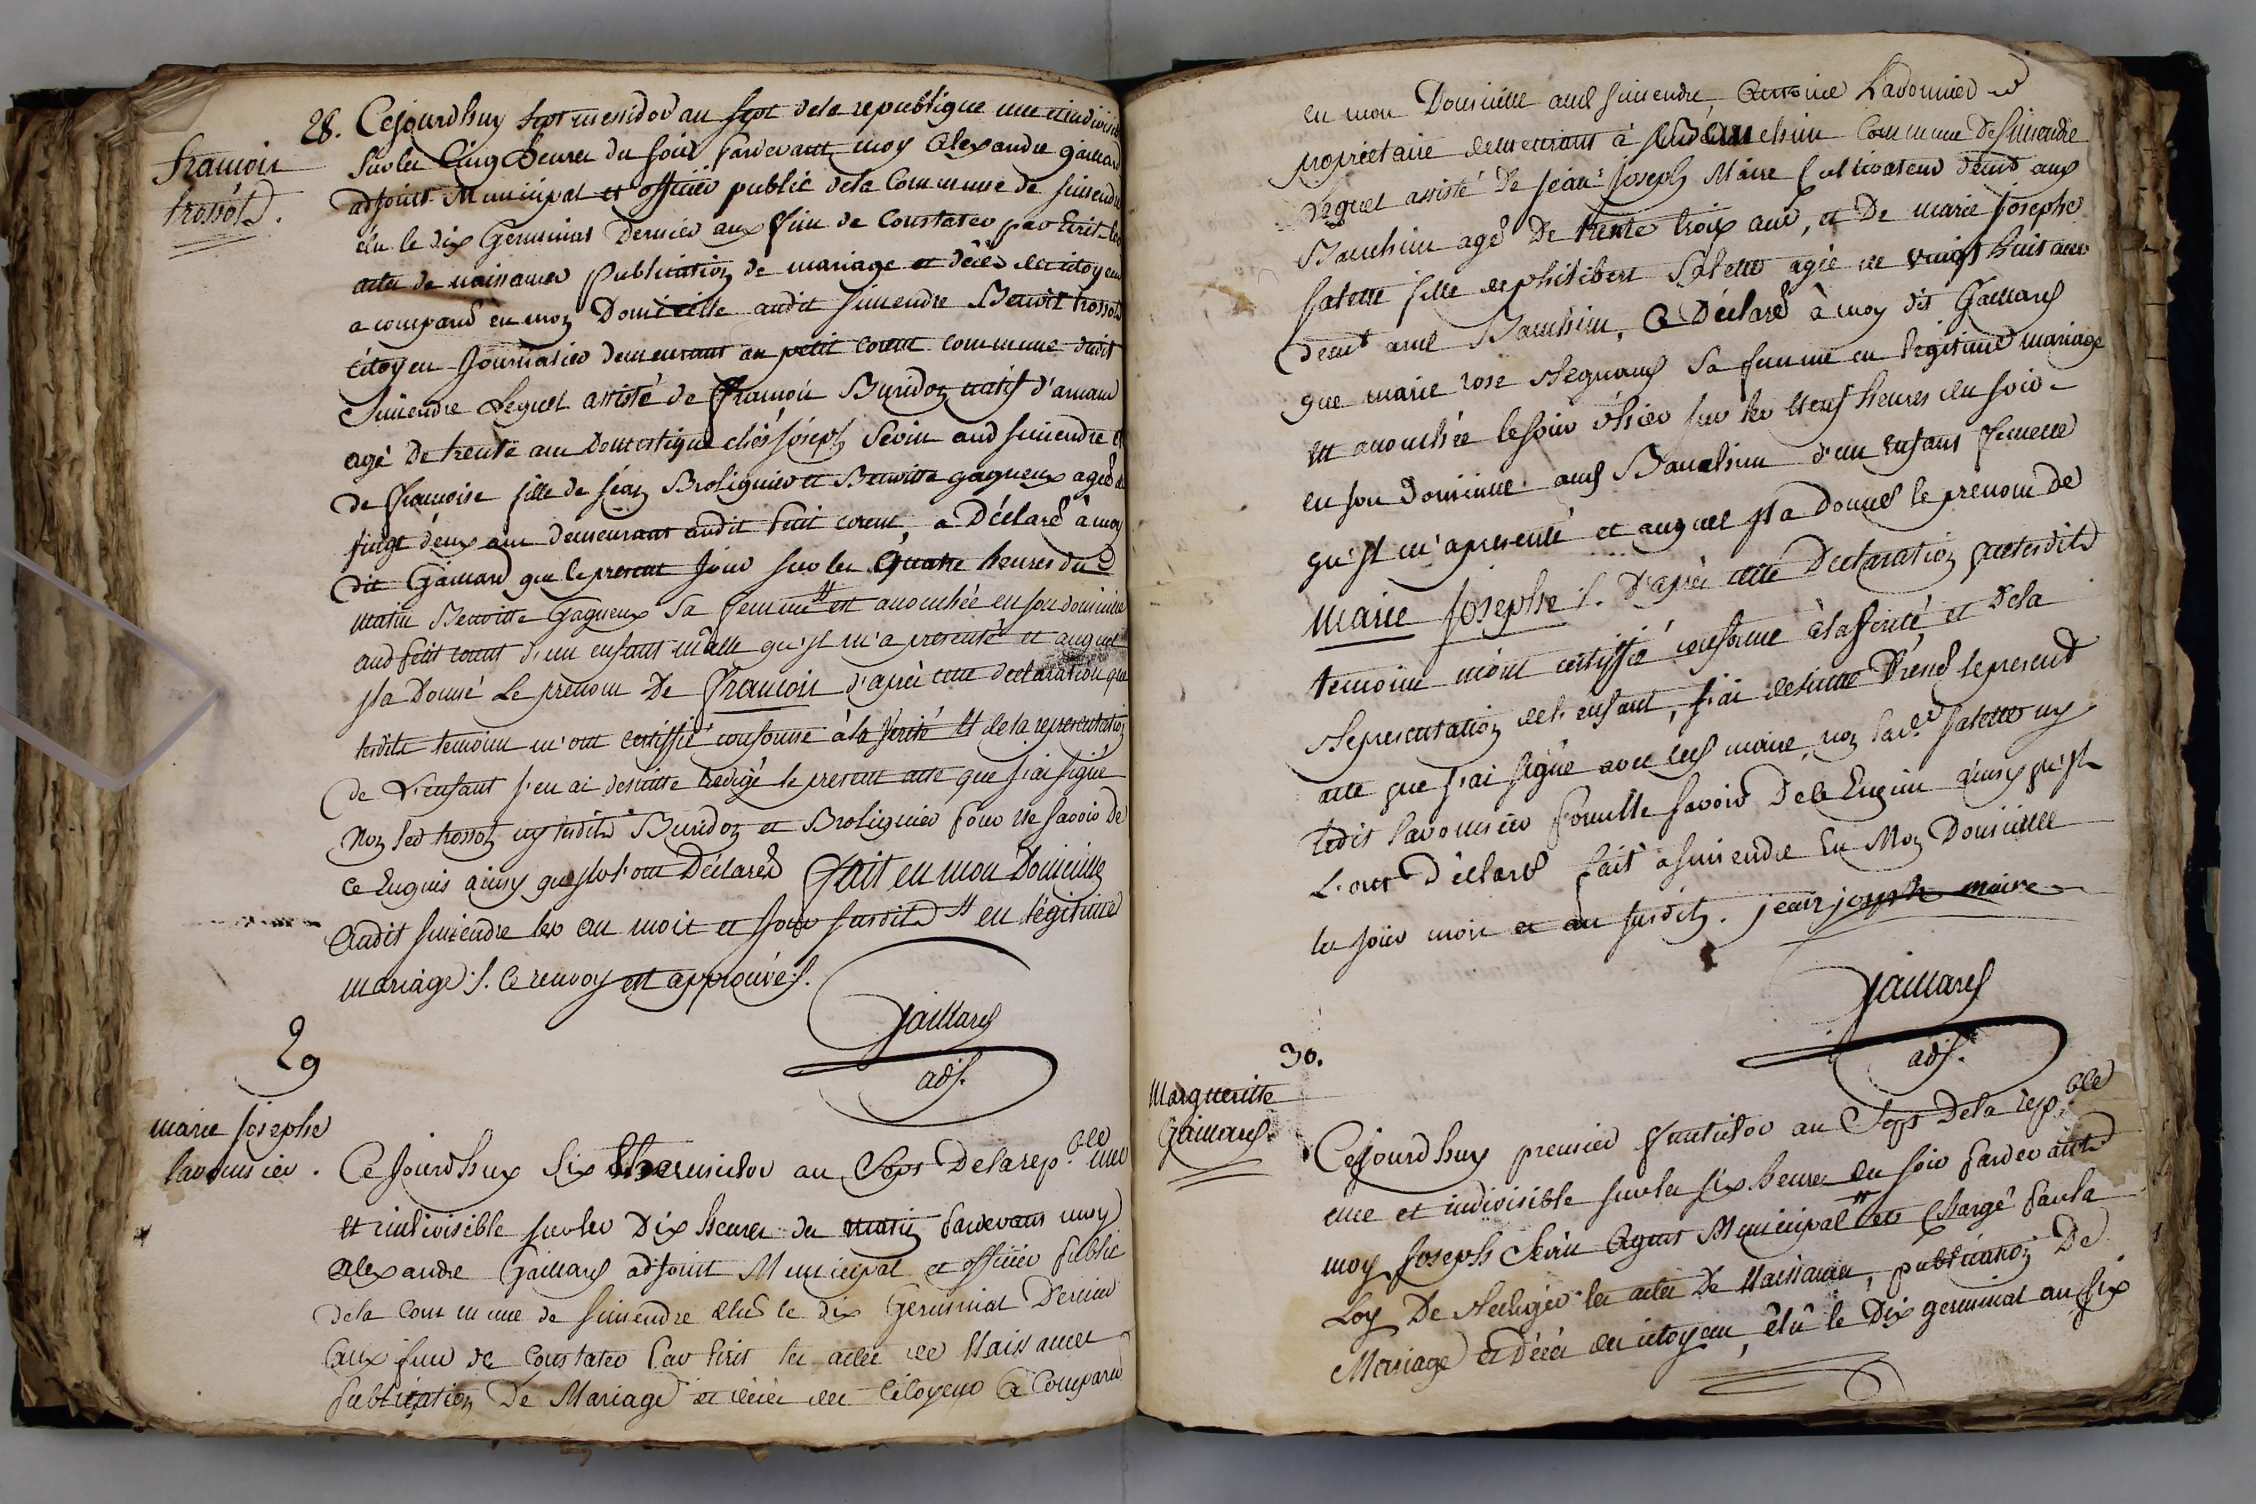 28.
francois
trossot.
Cejourdhuy sept messidor an sept dela republique une et indivisible
sur les cinq heures du soir pardevant moy alexandre gaillard
adjoint Municipal et officier public dela Commune de simendre
élu le dix Germinal Dernier aux fin de Constater par Ecrit les
actes de naissances publication de mariage et décès des citoyens
a comparu en mon Domicille audit simendre Benoit trossot
citoyen Journalier demeurant au petit corent commune dudit
Simendre Lequel assisté de françois Buridon natif d'
agé de trente ans Domestique chés joseph Sevin aud simendre et
de francoise fille de jéan Broliquier et Benoitte gagneux agée de
vingt déux ans demeurant audit petit corent, a Déclaré à moy
dit Gaillard que le present Jour sur les quatre heures du
matin Benoitte Gagneux Sa femme # est accouchée en son domicille
aud petit corent d'un enfant mâlle qu'jl m'a presenté et auquel
jl a Donné Le prenom De francois d'après cette declaration que
lesdits temoins m'ont certiffié conforme à la Verité et de la representation
de L'enfant j'en ai desuitte redigé le present acte que j'ai signé
Non led trossot ny lesdits Buridon et Broliquier pour ne savoir de
ce Enquis ainsy qu'jls l'ont Déclarés fait en mon Domicille
audit simendre les an mois et jour susdits # en légitime
mariage ./. ce renvoy est approuvé ./.
Gaillard
adj.
29
marie josephe
lavonnier.
Ce jourdhuy six thermidor an Sept Dela rep.ble une
et indivisible sur les Dix heures du matin pardevant moy
alexandre Gaillard adjoint Municipal et officier public
dela Commune de simendre élu le dix Germinal Dernier
aux fins de Constater par Ecrit les actes de Naissances
publication De Mariage et décès des Citoyens a Comparu
en mon Domicille aud simendre, Antoine Lavonnier
propriétaire demeurant à chim Commune de Simendre
Lequel assisté de jean joseph Maire Cultivateur demt aux
Bauchim agé De trente troix ans, et De marie josephe
salette fille de philibert Salette agée de vingt huit ans
demt aud Bauchim, a Déclaré à moy dit Gaillard
que marie rose Sa femme en legitime mariage
est accouchée le jour d'hier sur les neuf heures du soir
en son domicille aud Bauchim d'un enfant femelle
qu'jl m'a presenté et auquel jl a Donné le prenom de
marie josephe ./. D'après cette Declaration que lesdits
temoins m'ont certiffié conforme à la verité, et Dela
Representation de l'enfant, j'ai desuitte le present
acte que j'ai signé avec led maire, non lad.e salette ny
ledit Lavonnier pour ne savoir De ce Enquis ainsy qu'jls
L'ont Déclaré fait à simendre En Mon Domicille
les jour mois et an susdits. jean joseph maire
Gaillard
adj.
30.
Margueritte
Gaillard.
Cejourdhuy premier fructidor an Sept Dela rep.ble
une et indivisible sur les six heures du soir pardevant
moy Joseph Sevin Agent Municipal # Chargé par la
Loy De Rediger les actes De Naissances, publication De
Mariage et Décés des citoyens, élû le Dix germinal an six